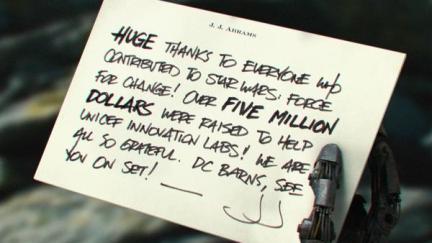 J. J. ABRAMS
HUGE THANKS TO EVERYONE WHO
CONTRIBUTED TO STAR WARS: FORCE
FOR CHANGE! OVER FIVE MILLION
DOLLARS WERE RAISED TO HELP
UNICEF INNOVATION LABS! WE ARE
ALL SO GRATEFUL. DC BARNS, SEE
YOU ON SET! — JJ